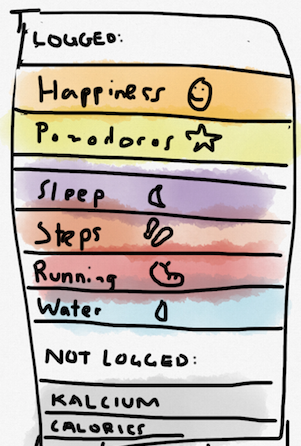 LOGGED:
Happiness
Pomodoros
Sleep
Steps
Running
Water
NOT LOGGED:
KALCIUM
CALORIES